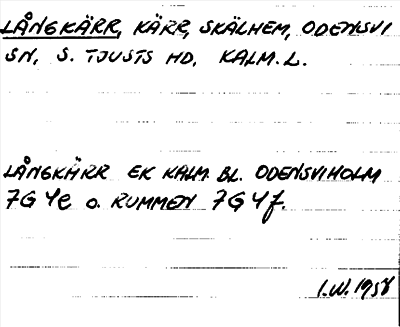 LÅNGKÄRR, KÄRR, SKÄLHEM, ODENSVI
SN, S. TJUSTS HD, KALM. L.
LÅNGKÄRR EK KALM. BL. ODENSVIHOLM
7G4e o. RUMMEN 7G4f.
I.W. 1958